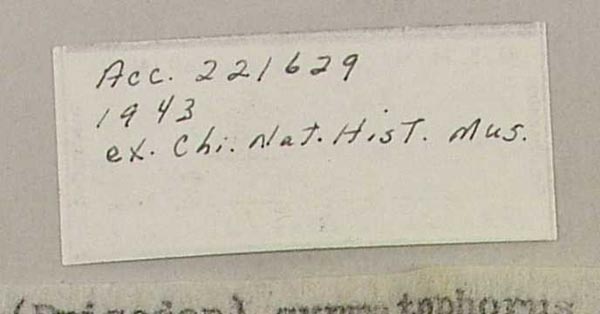 Acc. 221629
1943
ex. Chi. Nat. Hist. Mus.